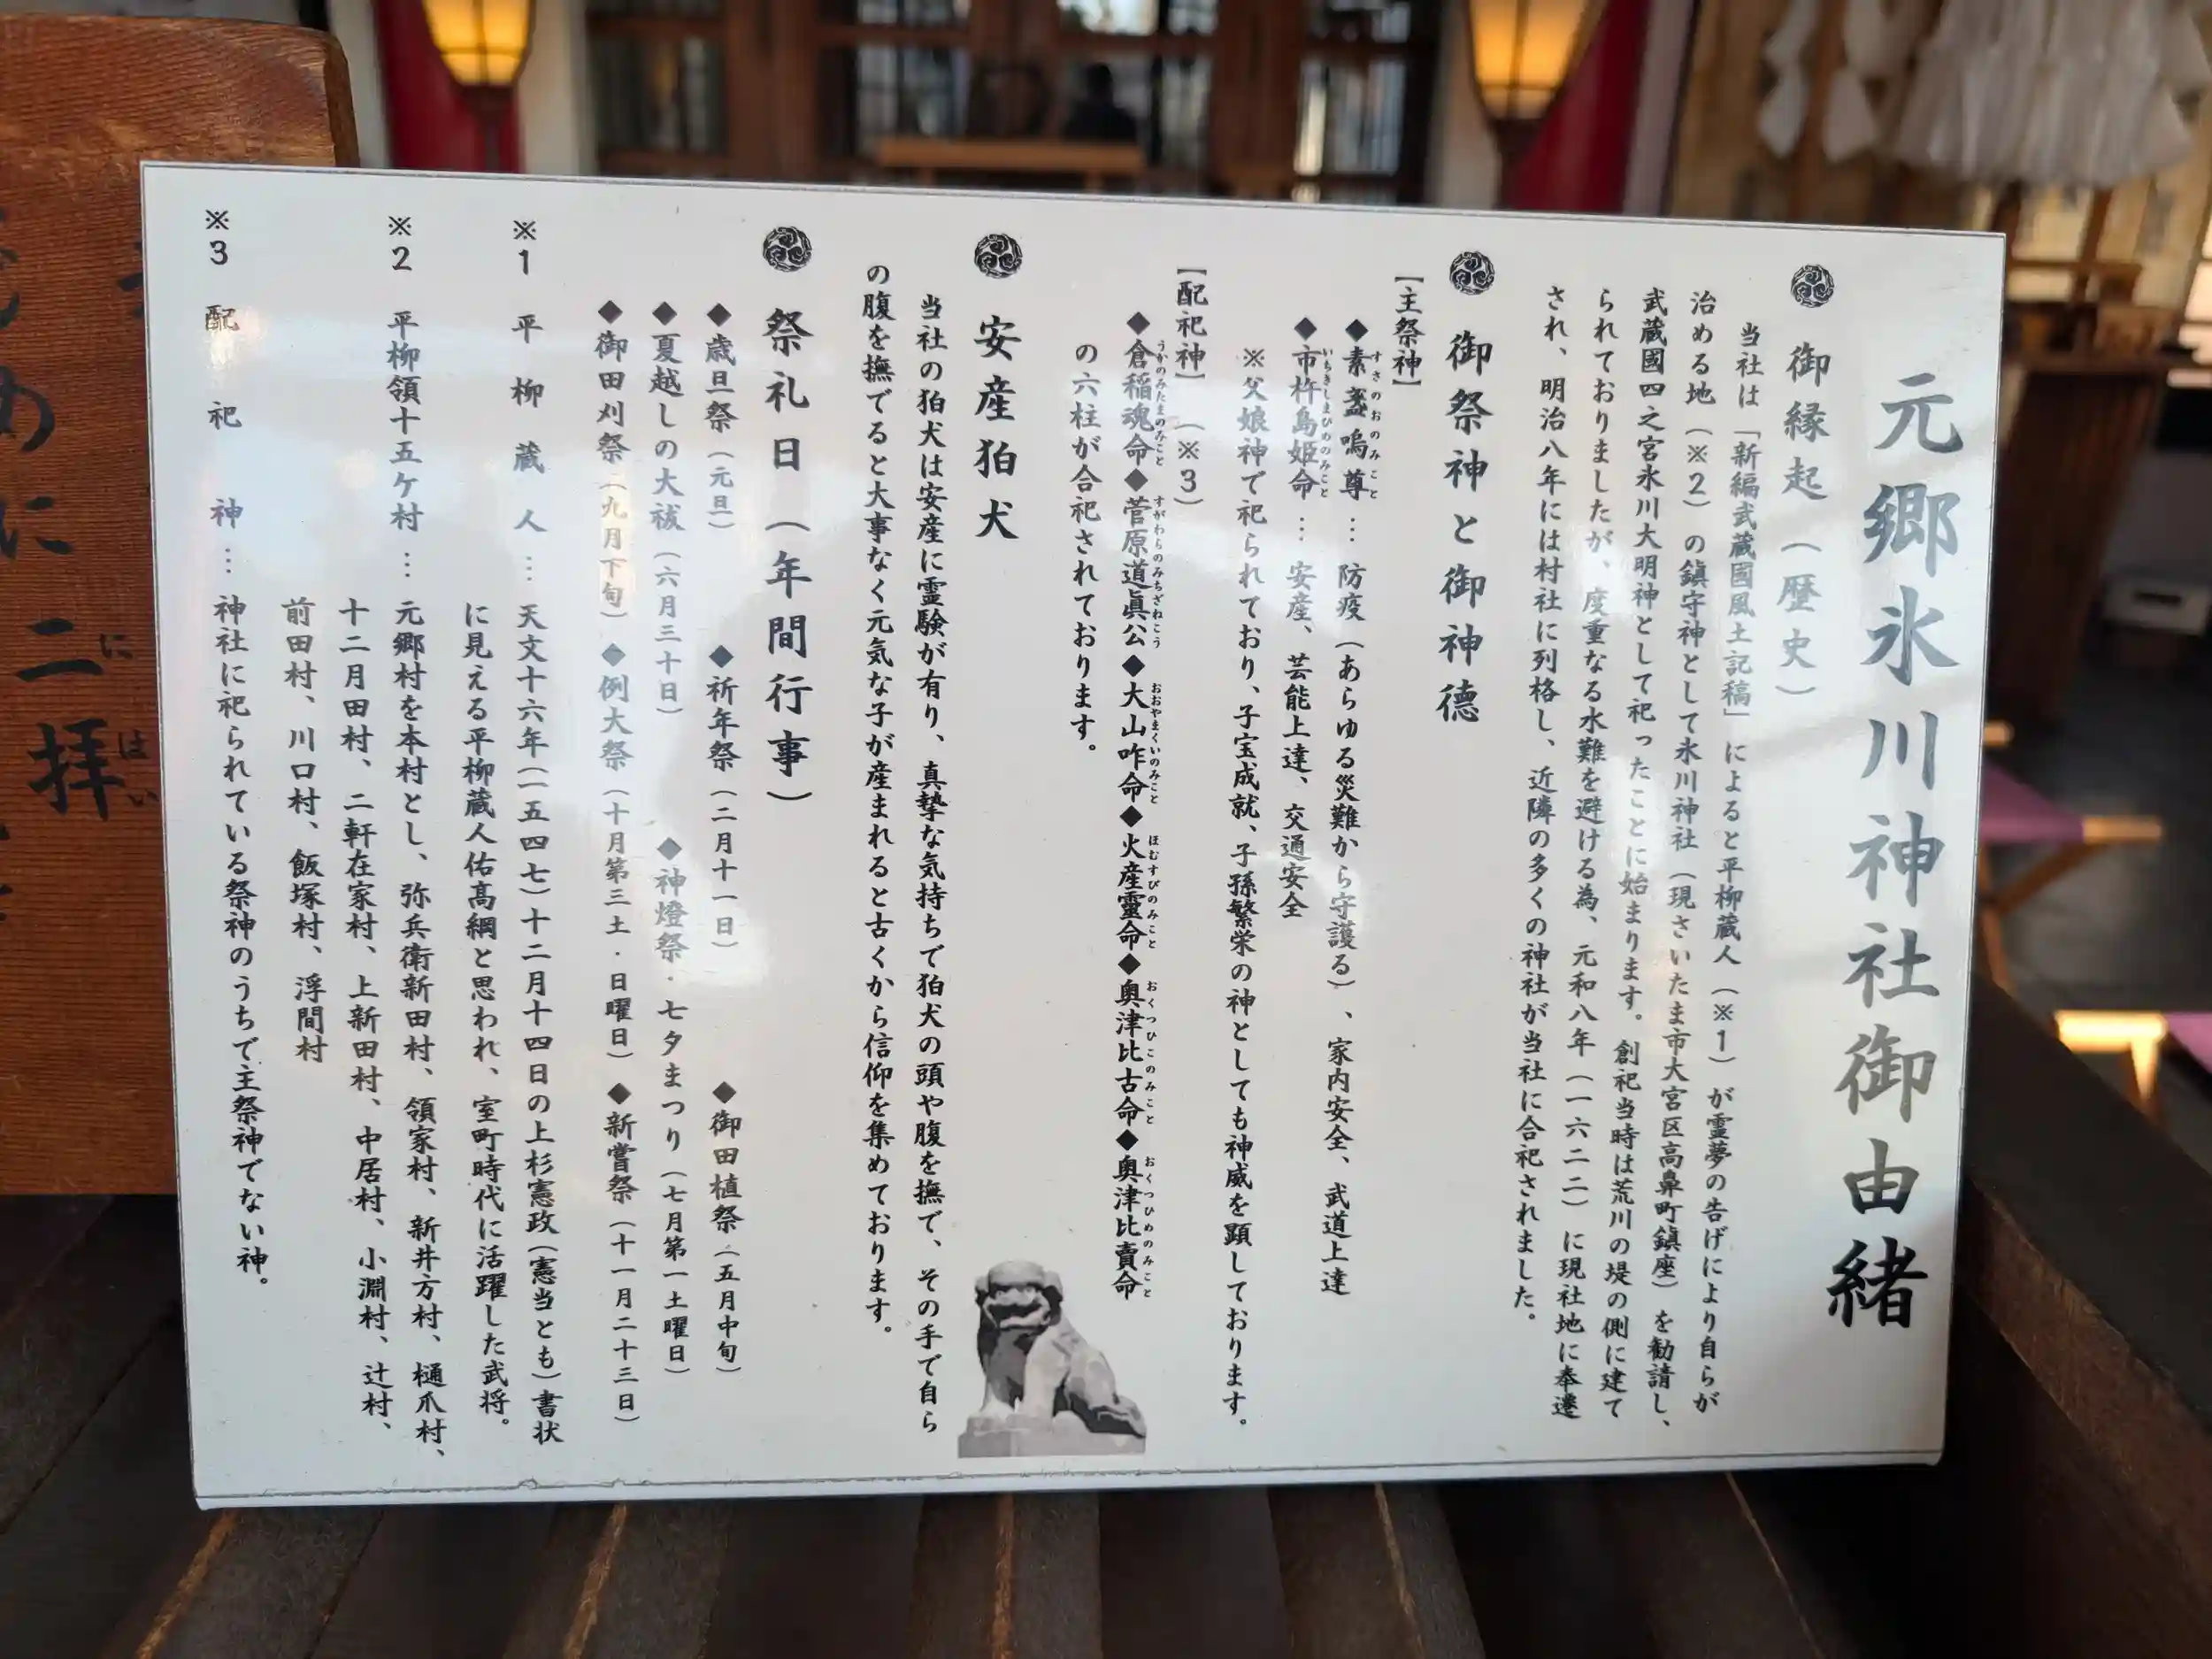 元郷氷川神社御由緒
御縁起（歴史）
当社は「新編武蔵國風土記稿」によると平柳蔵人（※1）が霊夢の告げにより自らが
治める地（※2）の鎮守神として氷川神社（現さいたま市大宮区高鼻町鎮座）を勧請し、
武蔵國四之宮氷川大明神として祀ったことに始まります。創祀当時は荒川の堤の側に建て
られておりましたが、度重なる水難を避ける為、元和八年（一六二二）に現社地に奉遷
され、明治八年には村社に列格し、近隣の多くの神社が当社に合祀されました。
御祭神と御神徳
【主祭神】
◆素盞嗚尊…防疫（あらゆる災難から守護る）、家内安全、武道上達
すさのおのみこと
◆市杵島姫命…安産、芸能上達、交通安全
いちきしまひめのみこと
※父娘神で祀られており、子宝成就、子孫繁栄の神としても神威を顕しております。
【配祀神】（※3）
◆倉稲魂命◆菅原道眞公◆大山咋命◆火産霊命◆奥津比古命◆奥津比賣命
うかのみたまのみこと すがわらのみちざねこう おおやまくいのみこと ほむすびのみこと おくつひこのみこと おくつひめのみこと
の六柱が合祀されております。
安産狛犬
当社の狛犬は安産に霊験が有り、真摯な気持ちで狛犬の頭や腹を撫で、その手で自ら
の腹を撫でると大事なく元気な子が産まれると古くから信仰を集めております。
祭礼日（年間行事）
◆歳旦祭（元旦） ◆祈年祭（二月十一日） ◆御田植祭（五月中旬）
◆夏越しの大祓（六月三十日） ◆神燈祭・七夕まつり（七月第一土曜日）
◆御田刈祭（九月下旬）◆例大祭（十月第三土・日曜日）◆新嘗祭（十一月二十三日）
※1 平柳蔵人…天文十六年（一五四七）十二月十四日の上杉憲政（憲当とも）書状
に見える平柳蔵人佑高綱と思われ、室町時代に活躍した武将。
※2 平柳領十五ケ村…元郷村を本村とし、弥兵衛新田村、領家村、新井方村、樋爪村、
十二月田村、二軒在家村、上新田村、中居村、小淵村、辻村、
前田村、川口村、飯塚村、浮間村
※3 配祀神…神社に祀られている祭神のうちで主祭神でない神。
二拝
に はい
めに